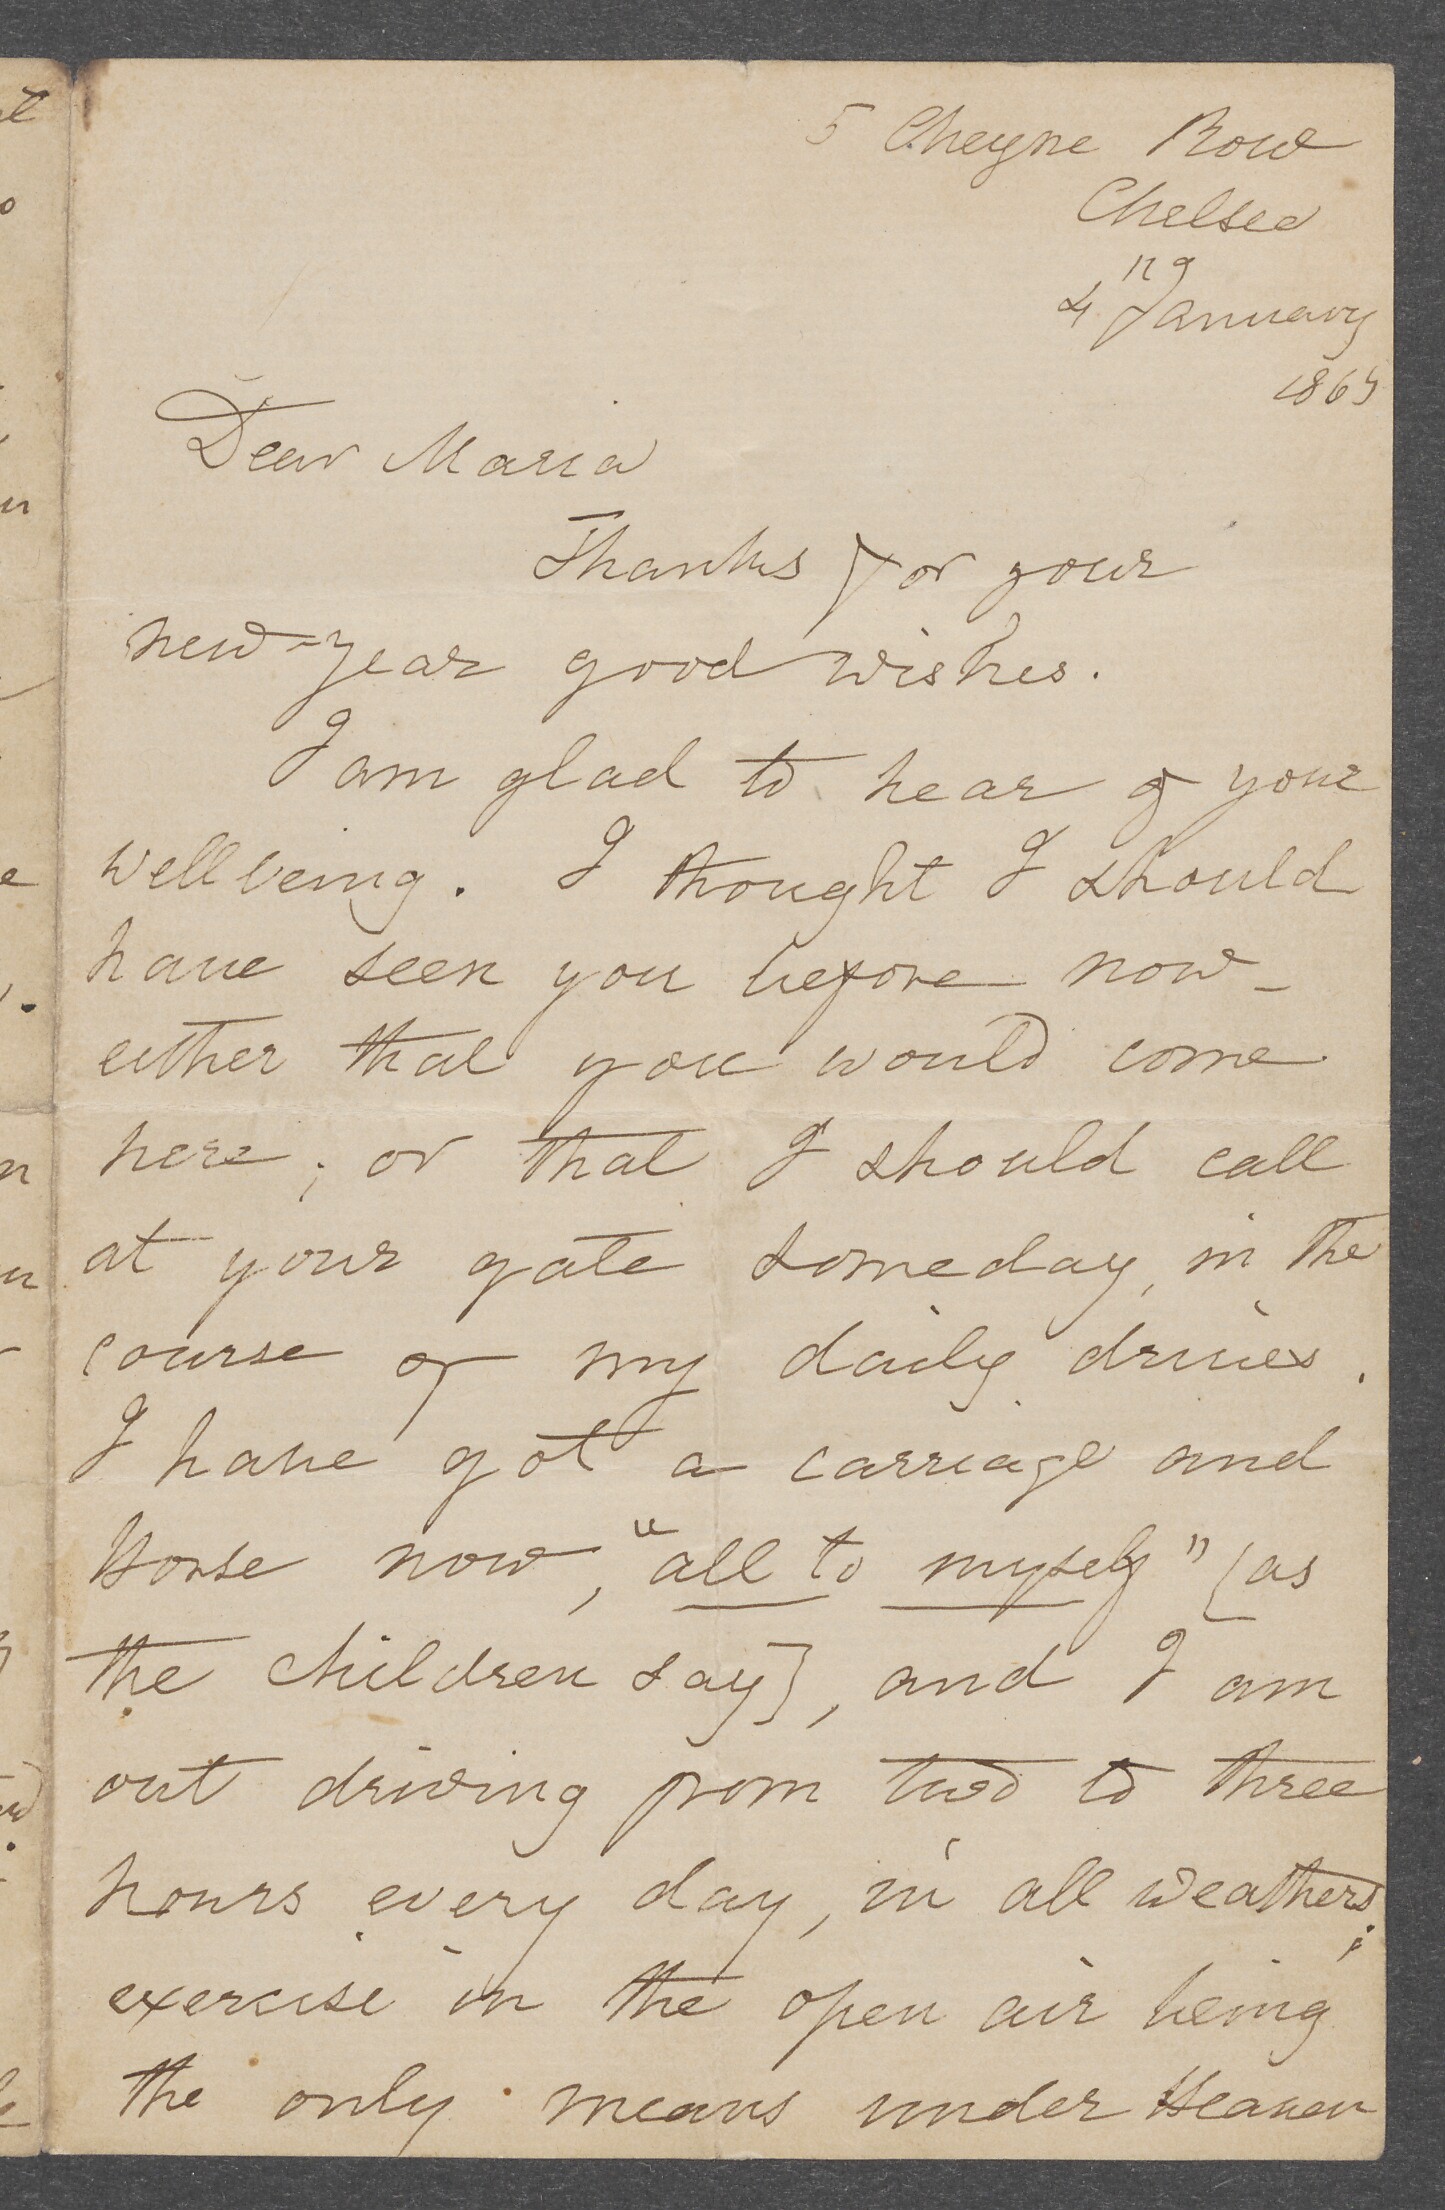 5 Cheyne Row
Chelsea
4 January
1865
Dear Maria
Thanks for your
new-year good wishes.
I am glad to hear of your
wellbeing. I thought I should
have seen you before now –
either that you would come
here; or that I should call
at your gate someday, in the
course of my daily drives.
I have got a carriage and
Horse now, "all to myself" [as
the children say], and I am
out driving from two to three
hours every day, in all weathers;
exercise in the open air being
the only means under Heaven